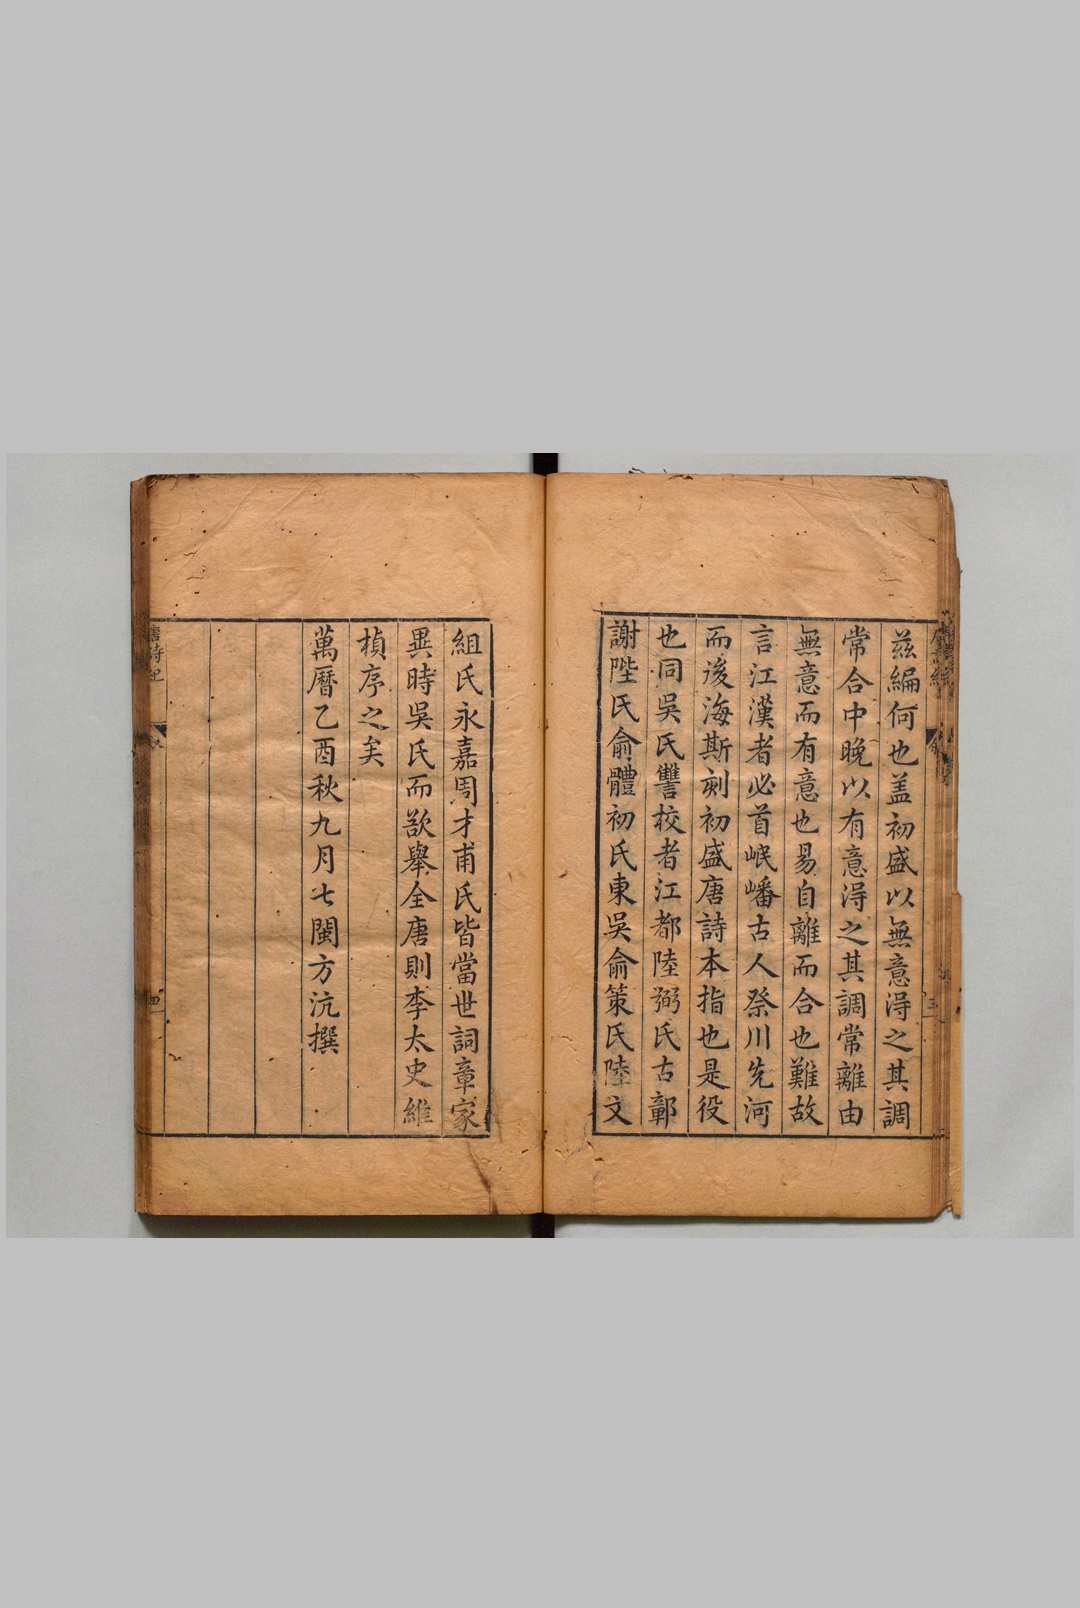 兹編何也盖初盛以無意淂之其調
常合中晚以有意淂之其調常離由
無意而有意也易自離而合也難故
言江漢者必首岷嶓古人祭川先河
而後海斯刻初盛唐詩本指也是役
也同吳氏讐校者江都陸弼氏古鄣
謝陛氏俞體初氏東吳俞策氏陸文
組氏永嘉周才甫氏皆當世詞章家
異時吳氏而欲舉全唐則李太史維
楨序之矣
萬曆乙酉秋九月七閩方沆撰
唐詩紀
四